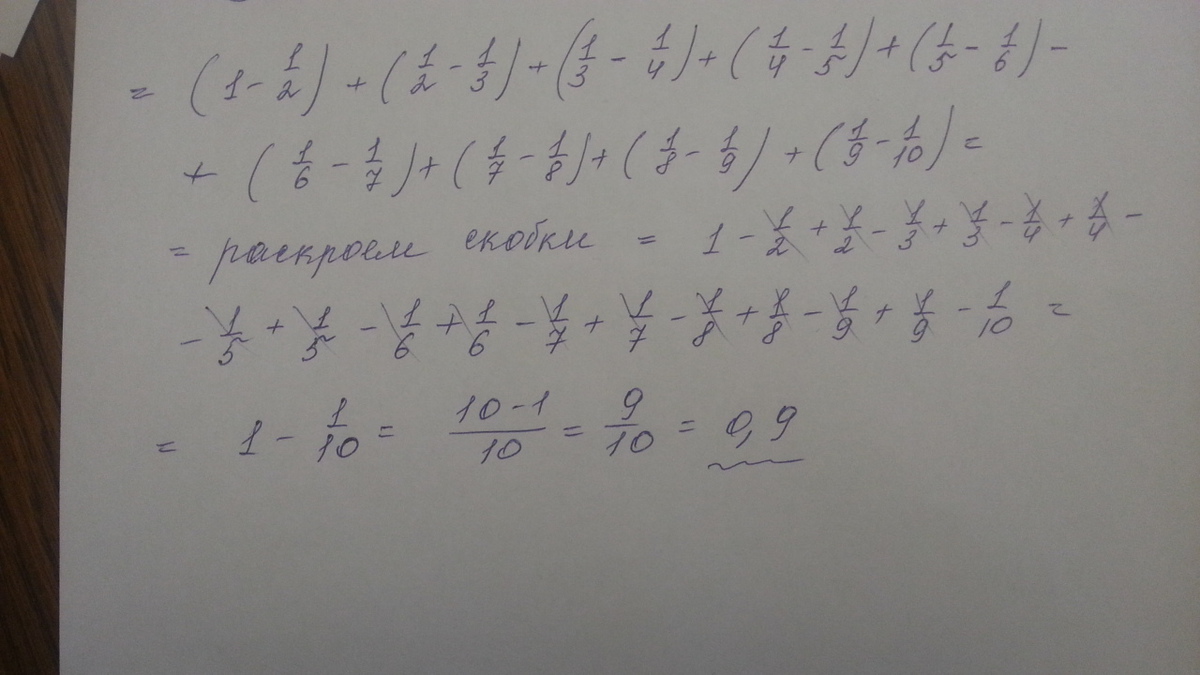 = (1 - 1/2) + (1/2 - 1/3) + (1/3 - 1/4) + (1/4 - 1/5) + (1/5 - 1/6) -
+ (1/6 - 1/7) + (1/7 - 1/8) + (1/8 - 1/9) + (1/9 - 1/10) =
= раскроем скобки = 1 - 1/2 + 1/2 - 1/3 + 1/3 - 1/4 + 1/4 -
- 1/5 + 1/5 - 1/6 + 1/6 - 1/7 + 1/7 - 1/8 + 1/8 - 1/9 + 1/9 - 1/10 =
= 1 - 1/10 = (10-1)/10 = 9/10 = 0,9